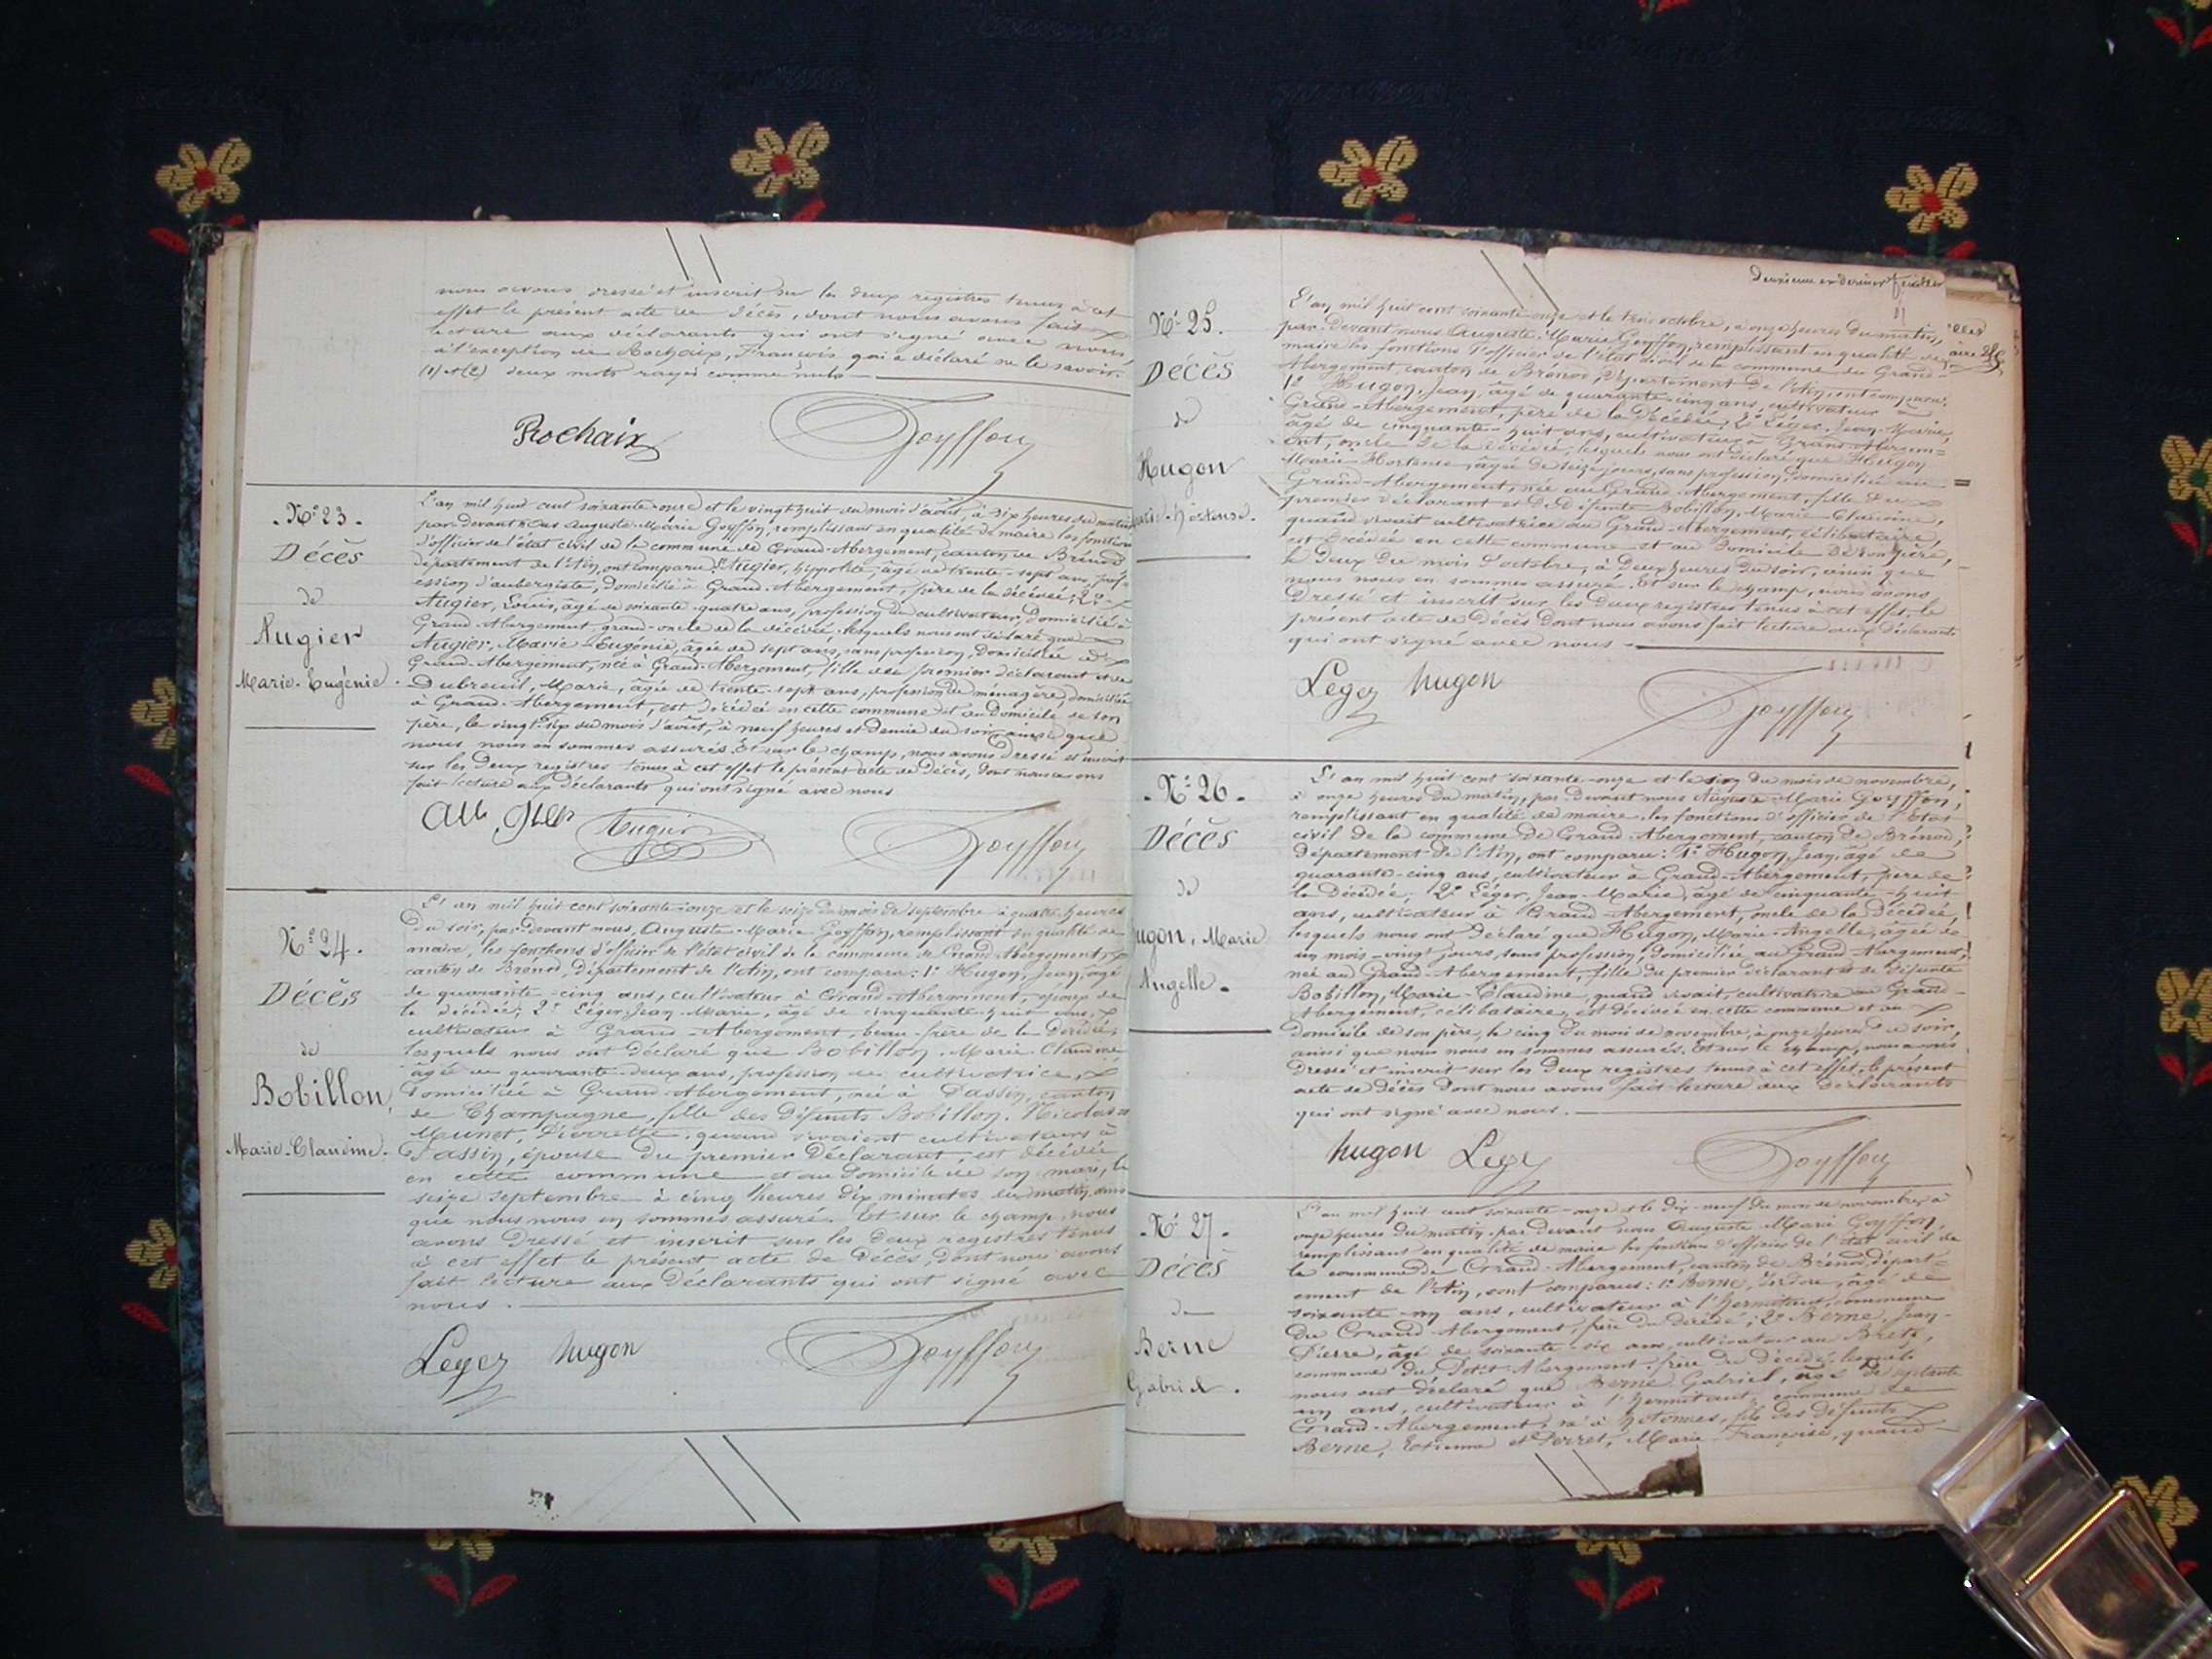 nous avons dressé et inscrit sur les deux registres tenus à cet
effet le présent acte de décès, dont nous avons fait
lecture aux déclarants qui ont signé avec nous,
à l'exception de Rochaix, François qui a déclaré ne le savoir.
(1) et (2) deux mots rayés comme nuls
Rochaix Goyffon
N° 23.
Décès
de
Augier
Marie-Eugénie.
L'an mil huit cent soixante-onze et le vingt-huit du mois d'août, à dix heures du matin
par-devant nous Auguste-Marie Goyffon, remplissant en qualité de maire les fonctions
d'officier de l'état civil de la commune de Grand-Abergement, canton de Brénod
département de l'Ain, ont comparu: 1° Augier, hippolite, âgé de trente-sept ans, prof
ession d'aubergiste, domicilié à Grand-Abergement, père de la décédée; 2°
Augier, Louis, âgé de soixante-quatre ans, profession de cultivateur, domicilié à
Grand-Abergement, grand-oncle de la décédée, lesquels nous ont déclaré que
Augier, Marie-Eugénie, âgée de sept ans, sans profession, domiciliée à
Grand-Abergement, née à Grand-Abergement, fille du premier déclarant et de
Dubreuil, Marie, âgée de trente-sept ans, profession de ménagère, domiciliée
à Grand-Abergement, est décédée en cette commune et au domicile de son
père, le vingt-six du mois d'août, à neuf heures et demie du soir ainsi que
nous nous en sommes assurés. Et sur le champ, nous avons dressé et inscrit
sur les deux registres tenus à cet effet le présent acte de décès, dont nous avons
fait lecture aux déclarants qui ont signé avec nous
Augier Augier Goyffon
N° 24.
Décès
de
Bobillon,
Marie-Claudine.
L'an mil huit cent soixante-onze et le seize du mois de septembre à quatre heures
du soir, par-devant nous, Auguste-Marie Goyffon, remplissant en qualité de
maire, les fonctions d'officier de l'état civil de la commune de Grand-Abergement,
canton de Brénod, département de l'Ain, ont comparu: 1° Hugon, Jean, âgé
de quarante-cinq ans, cultivateur à Grand-Abergement, époux de
la décédée; 2° Léger Jean-Marie, âgé de cinquante-huit ans,
cultivateur à Grand-Abergement, beau-frère de la décédée,
lesquels nous ont déclaré que Bobillon, Marie-Claudine
âgée de quarante-deux ans, profession de cultivatrice,
domiciliée à Grand-Abergement, née à Passin, canton
de Champagne, fille des défunts Bobillon, Nicolas et
Munet, Pierrette, quand vivaient cultivateurs à
Passin, épouse du premier déclarant est décédée
en cette commune et au domicile de son mari, le
seize septembre à cinq heures dix minutes du matin, ainsi
que nous nous en sommes assuré. Et sur le champ, nous
avons dressé et inscrit sur les deux registres tenus
à cet effet le présent acte de décès, dont nous avons
fait lecture aux déclarants qui ont signé avec
nous.
Leger hugon Goyffon
Deuxième et dernier feuillet
N° 25.
Décès
de
Hugon
Marie-hortense.
L'an mil huit cent soixante-onze et le trois octobre, à onze heures du matin,
par-devant nous Auguste-Marie Goyffon, remplissant en qualité de
maire les fonctions d'officier de l'état civil de la commune du Grand-
Abergement, canton de Brénod, département de l'Ain, ont comparu:
1° Hugon, Jean, âgé de quarante-cinq ans, cultivateur
Grand-Abergement, père de la décédée, 2° Léger, Jean-Marie,
âgé de cinquante-huit ans, cultivateur à Grand-Abergem=
ent, oncle de la décédée, lesquels nous ont déclaré que Hugon
Marie-Hortense, âgée de seize jours, sans profession, domiciliée au
Grand-Abergement, née au Grand-Abergement, fille du
premier déclarant et de défunte Bobillon, Marie-Claudine,
quand vivait cultivatrice au Grand-Abergement, célibataire,
est décédée en cette commune et au domicile de son père,
le deux du mois d'octobre, à deux heures du soir, ainsi que
nous nous en sommes assuré. Et sur le champ, nous avons
dressé et inscrit sur les deux registres tenus à cet effet, le
présent acte de décès dont nous avons fait lecture aux déclarants
qui ont signé avec nous
Leger hugon Goyffon
N° 26.
Décès
de
Hugon, Marie
Angelle.
L'an mil huit cent soixante-onze et le six du mois de novembre,
à onze heures du matin, par-devant nous Auguste-Marie Goyffon,
remplissant en qualité de maire les fonctions d'officier de l'état
civil de la commune de Grand-Abergement, canton de Brénod,
département de l'Ain, ont comparu: 1° Hugon, Jean, âgé de
quarante-cinq ans, cultivateur à Grand-Abergement, père de
la décédée; 2° Léger, Jean-Marie, âgé de cinquante-huit
ans, cultivateur à Grand-Abergement, oncle de la décédée,
lesquels nous ont déclaré que Hugon, Marie-Angelle, âgée de
un mois-vingt jours, sans profession, domiciliée au Grand-Abergement,
née au Grand-Abergement, fille du premier déclarant et de défunte
Bobillon, Marie-Claudine, quand vivait, cultivatrice au Grand-
Abergement, célibataire, est décédée en cette commune et au
domicile de son père, le cinq du mois de novembre, à onze heures du soir,
ainsi que nous nous en sommes assurés. Et sur le champ, nous avons
dressé et inscrit sur les deux registres tenus à cet effet, le présent
acte de décès dont nous avons fait lecture aux déclarants
qui ont signé avec nous.
hugon Leger Goyffon
N° 27.
Décès
de
Berne
Gabriel.
L'an mil huit cent soixante-onze et le dix-neuf du mois de novembre, à
onze heures du matin, par devant nous Auguste-Marie Goyffon,
remplissant en qualité de maire les fonctions d'officier de l'état civil de
la commune de Grand-Abergement, canton de Brénod, départ=
ement de l'Ain, sont comparus: 1° Berne, âgé de
soixante-un ans, cultivateur à l'hermitant, commune
du Grand-Abergement, frère du décédé; 2° Berne, Jean-
Pierre, âgé de soixante-six ans, cultivateur au Bretz,
commune du Petit-Abergement, frère du décédé, lesquels
nous ont déclaré que Berne Gabriel, âgé de septante
un ans, cultivateur à l'hermitant, commune de
Grand-Abergement, né à hotonnes, fils des défunts
Berne, Etienne et Perret, Marie-Françoise, quand